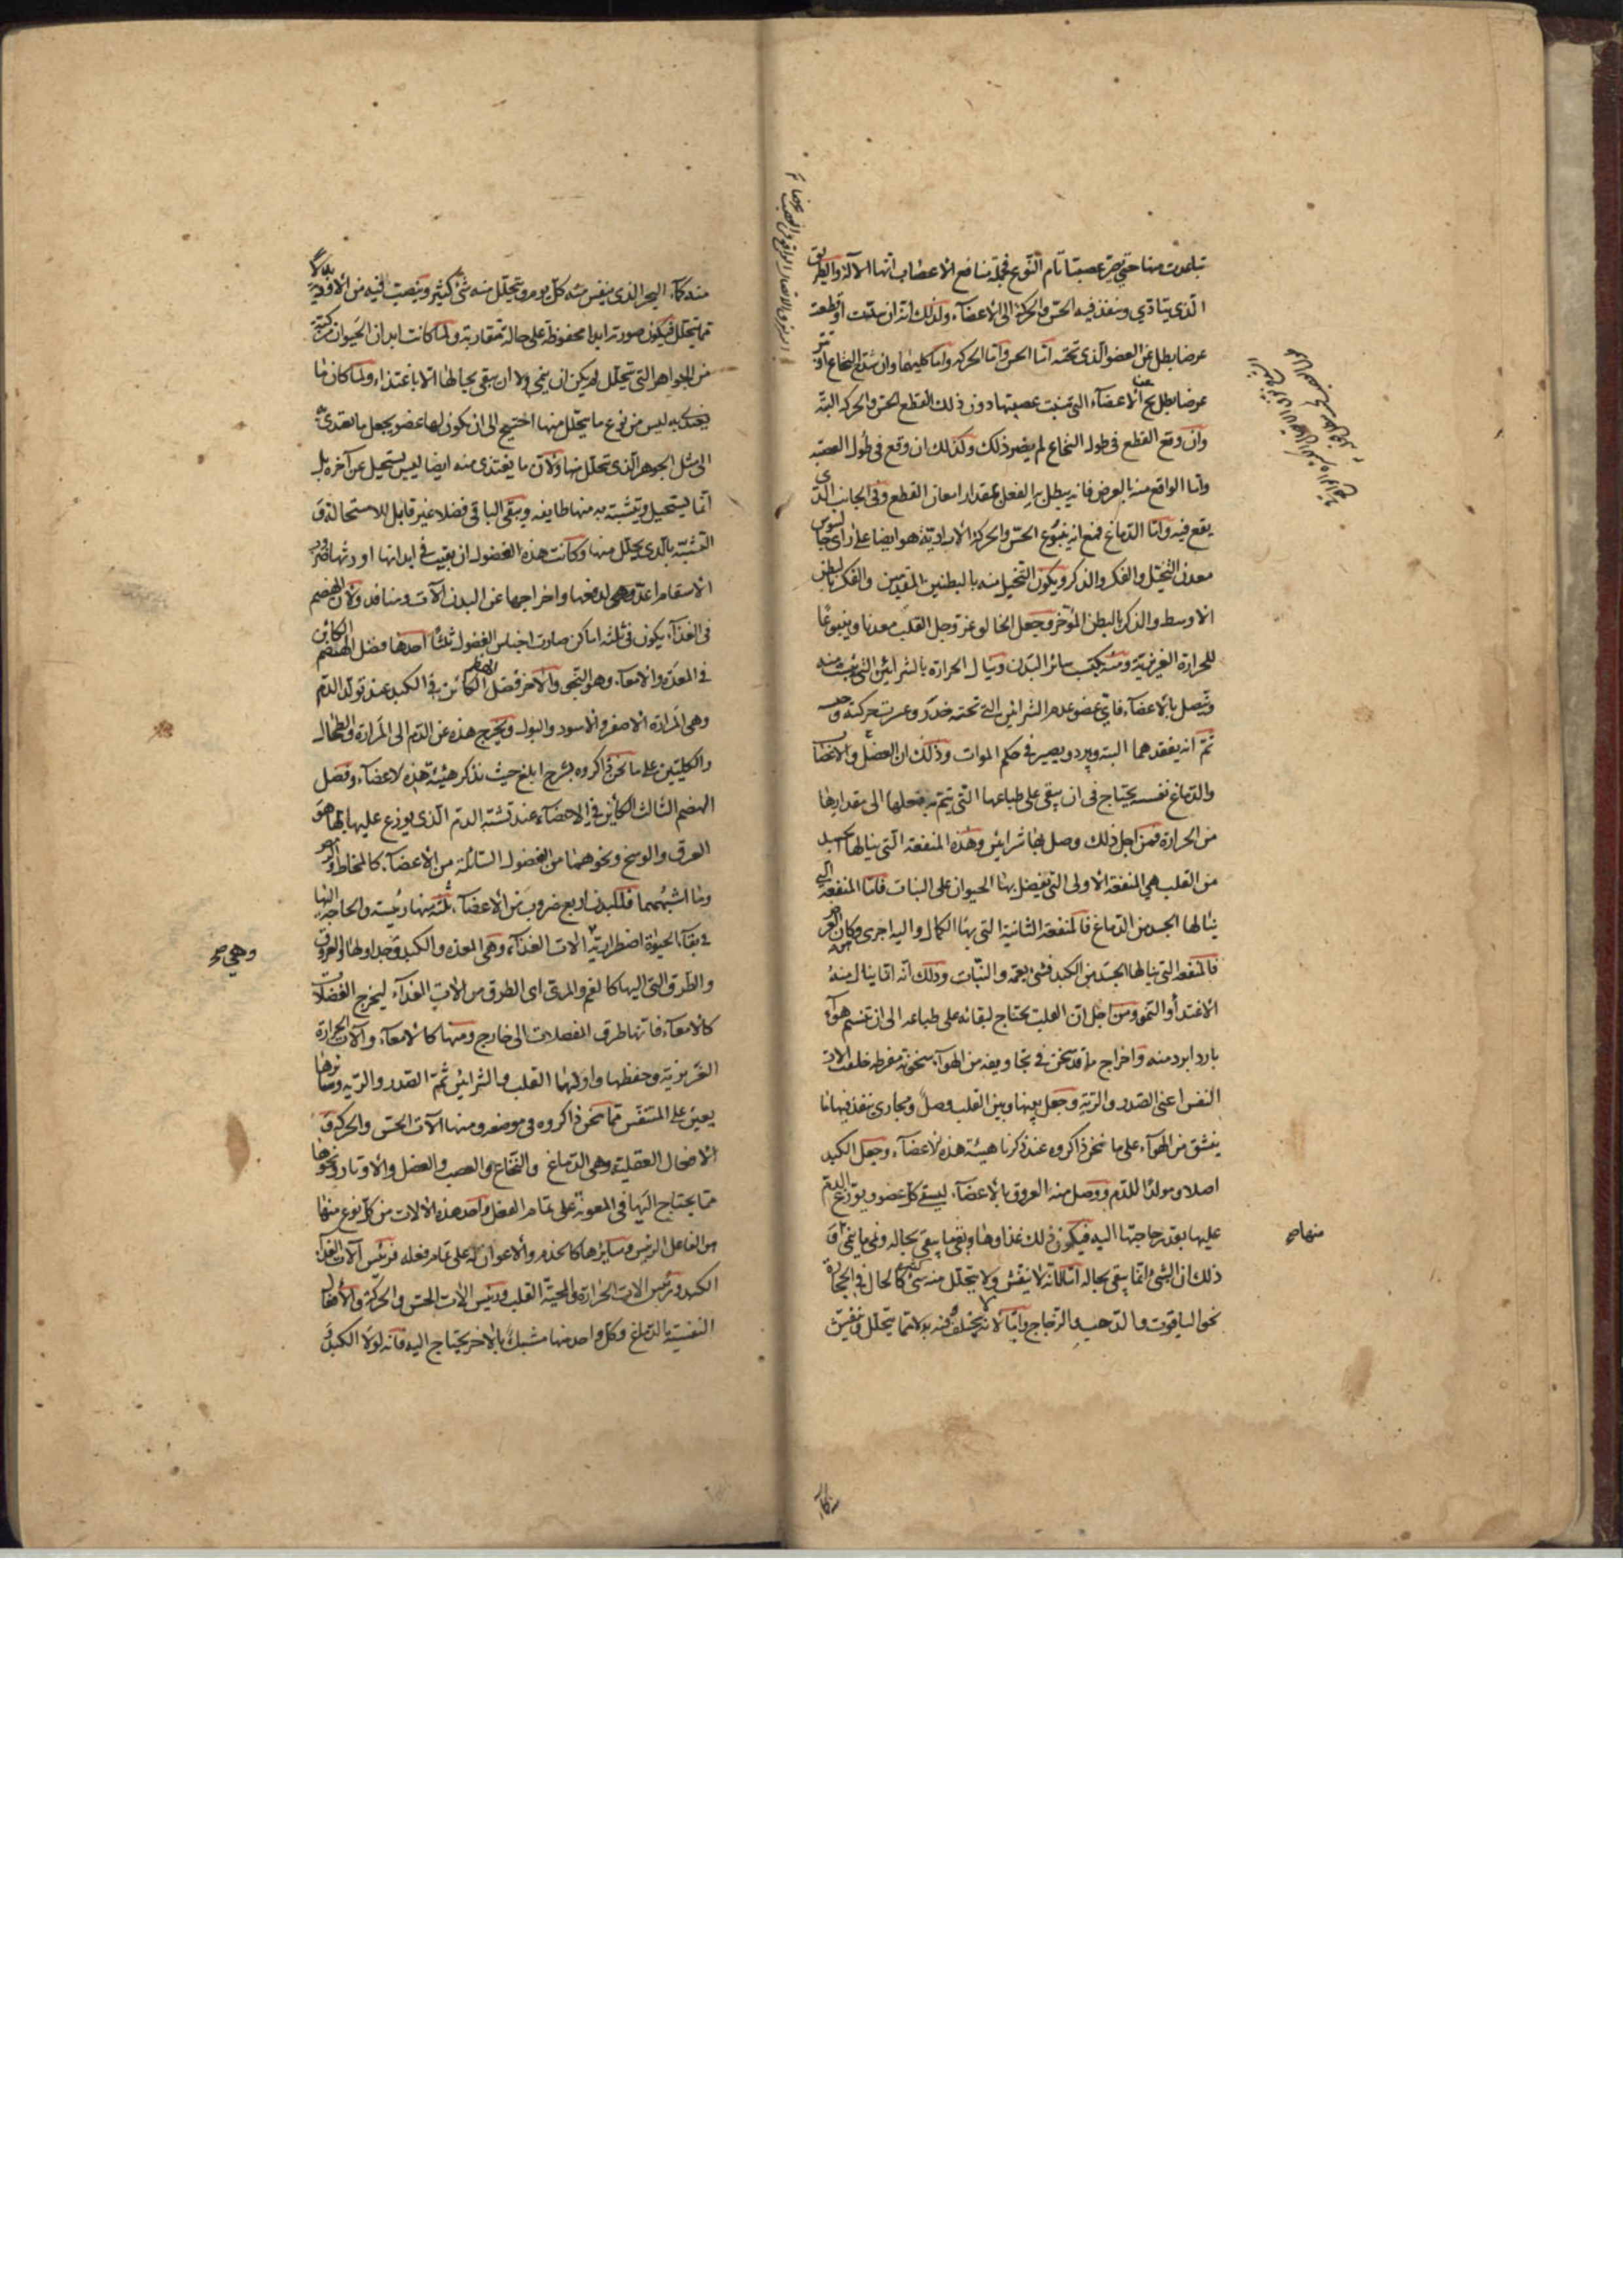 تباعدت منها حتى يصير عصبا تام النوع فجملة منافع الاعصاب انها الآلة والطريق
الذى يتادى وينفذ فيه الحس والحركة الى الاعضاء ولذلك انه ان سدت او قطعت
عرضا بطل عن العضو الذى تحته اما الحس واما الحركه واما كليهما وان سدّ النخاع او بتر
عرضا بطل عن الاعضاء التى تنبت عصبتها دون ذلك القطع الحس والحركه البتّه
وان وقع القطع فى طول النخاع لم يضر ذلك وكذلك ان وقع فى طول العصبه
واما الواقع منه بالعرض فانه يبطل به الفعل بمقدار امعان القطع وفى الجانب الذى
يقع فيه واما الدماغ فمع انه ينبوع الحسّ والحركة الارادية هو ايضا على راى جالينوس
معدن التخيّل والفكر والذكر ويكون التخيل منه بالبطنين المقدمين والفكر بالبطن
الاوسط والذكر بالبطن المؤخر وجعل الخالق عز وجل القلب معدنا وينبوعا
للحرارة الغريزية ومنه يكتسب سائر البدن وينال الحرارة بالشرائين التى تنبت منه
وتتصل بالاعضاء فاى عضو عدم الشرائين التى تحته خدر وعسر تحركته وحسه
ثمّ انه يفقدهما البته ويبرد ويصير فى حكم الموات وذلك ان العضل والاعضاء
والدماغ نفسه يحتاج فى ان يبقى على طباعها التى يتم به فعلها الى مقدار ما
من الحرارة فمن اجل ذلك وصل بها شرائين وهذه المنفعة التى ينالها الجسد
من القلب هى المنفعة الاولى التى يفضل بها الحيوان على النبات فامّا المنفعة التى
ينالها الجسد من الدماغ فالمنفعة الثانية التى بها الكمال واليه اجرى وكان الغرض
فالمنفعه التى ينالها الجسد من الكبد فشئ يعمّه والنبات وذلك انه انما ينال منه
الاغتذأ والنمو ومن اجل ان القلب يحتاج لبقائه على طباعه الى ان تنسم هوآء
بارد ابرد منه واخراج ما قد سخن فى تجاويفه من الهوآء سخونة مفرطه خلقت الات
النفس اعنى الصدر والرّية وجعل بينها وبين القلب وصل ومجارى ينفذ فيها ما
ينشق من الهوآء على ما نحن ذاكروه عند ذكرنا هيئة هذه الاعضآء وجعل الكبد
اصلا ومولدا للدم ووصل منه العروق بالاعضآء ليسقى كل عضو ويوزع الدم
عليها بقدر حاجتها اليه فيكون ذلك غذاوها وبقى ما يبقى بحاله ونمى ما ينمى وَ
منها صح
ذلك ان الشئ انما يبقى بحاله امّا لانّه لا ينفش ولا يتحلل منه شئ كثير كالحال فى الحجارة
نحو الياقوت والذهب والزجاج وامّا لانه يختلف فيه بدلا مما يتحلل وينفش
منه كآء
منه كمآء البحر الذى ينفس منه كل يوم ويتحلل منه شئ كثير وينصب فيه من الاودية بدلا
مما يتحلل فيكون صورته ابدا محفوظة على حالة متقاربة ولما كانت ابدان الحيوان مركبة
من الجواهر التى تتحلل لم يكن ان ينمى ولا ان يبقى بحالها الا باغتذاء ولما كان ما
يغتذى به ليس من نوع ما يتحلل منها احتيج الى ان يكون لها عضو يجعل ما تغتذى به
الى مثل الجوهر الذى تحلل منها ولان ما يغتذى منه ايضا ليس يستحيل عن آخره بل
انما يستحيل ويتشبه به منها طايفه ويبقى الباقى فضلا غير قابل للاستحالة وَ
التشبّه بالذى يتحلل منها وكانت هذه الفضول ان بقيت فى ابدانها اورثها ضروب
الاسقام اعدّ وهيئ لدفعها واخراجها عن البدن آلات ومنافذ ولان الهضم
فى الغذآء يكون فى ثلثة اماكن صارت اجناس الفضول ثلثاً احدها فضل الهضم الكائن
فى المعدة والامعآء وهو النجو والآخر فضل الهضم الكائن فى الكبد عند تولد الدم
وهى المرارة الاصفر والاسود والبول ويخرج هذه عن الدم الى المرارة والطحال
والكليتين على ما نحن ذاكروه بشرح ابلغ حيث نذكر هيئة هذه الاعضآء وفضل
الهضم الثالث الكائن فى الاعضآء عند تشبّه الدم الذى يوزع عليها بها هو
العرق والوسخ ونحوهما من الفضول السائلة من الاعضآء كالمخاط والرمص
وما اشبههما فللبدن اربع ضروب من الاعضآء ثلثة منها رئيسة والحاجة اليها
فى بقآء الحيوة اضطرارية الات الغذآء وهى المعده والكبد وجداولها والعروق
وهى صح
والطرق التى اليها كالفم والمرى اى الطرق من الات الغذآء ليخرج الفضلات
كالامعآء فانها طرق الفضلات الى خارج ومنها كالامعآء والآت الحرارة
الغريزية وحفظها واولها القلب والشرائين ثمّ الصدر والريه وسائر ما
يعين على التنفّس مما نحن ذاكروه فى موضعه ومنها آلات الحس والحركة وَ
الافعال العقلية وهى الدماغ والنخاع والعصب والعضل والاوتار ونحوها
مما يحتاج اليها فى المعونة على تمام الفعل واحد هذه الالات من كل نوع منها
هو الفاعل الرئيس وسايرها كالخدم والاعوان له على تمام فعله فرئيس آلات الغذآء
الكبد ورئيس الات الحرارة والمحية القلب ورئيس الات الحس والحركة والافعال
النفسية الدماغ وكل واحد منها مشبك بالاخر يحتاج اليه فانه لولا الكبد وَ